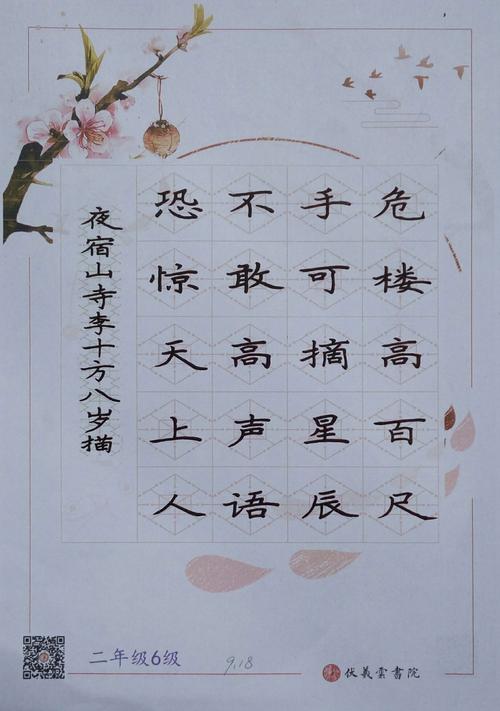 危楼高百尺
手可摘星辰
不敢高声语
恐惊天上人
夜宿山寺李十方八岁描
二年级6级
9.18
伏羲雲書院